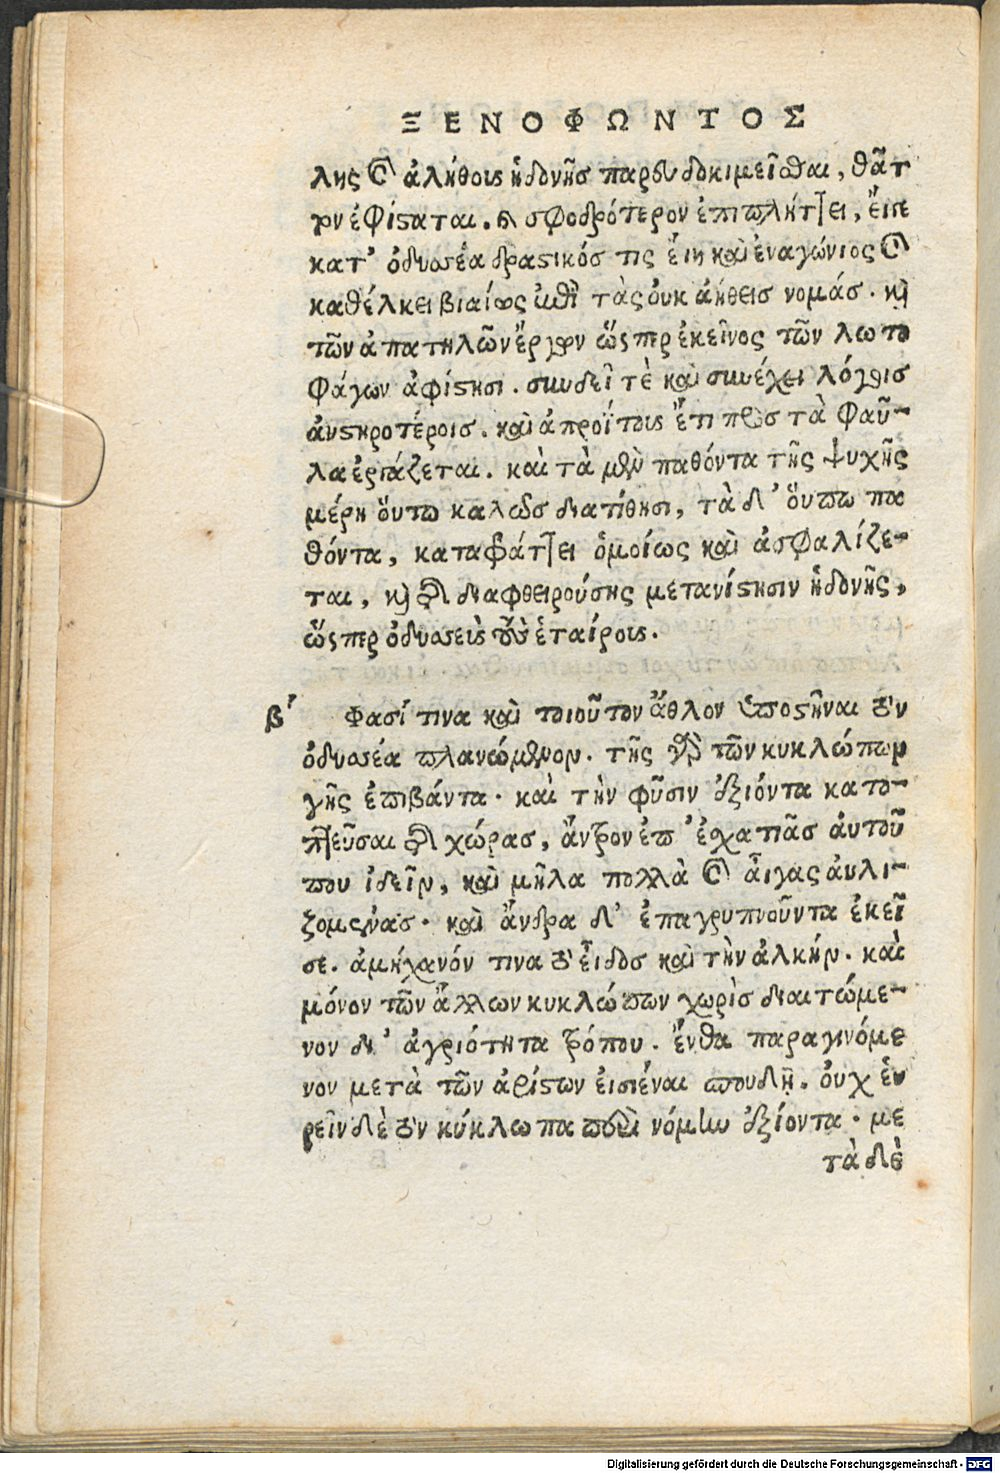 ΞΕΝΟΦΩΝΤΟΣ
λης καὶ ἀλήθους ἡδονῆσ παρευδοκιμεῖσθαι, θᾶτ
τον ἐφίσταται. καὶ σφοδρότερον ἐπιπλήττει, εἴπε
κατ' ὀδυσσέα δραστικόσ τις εἴη καὶ ἐναγώνιος καὶ
καθέλκει βιαίως ἐπὶ τὰς οὐκ ἀήθεισ νομάσ. καὶ
τῶν ἀπατηλῶν ἔργων ὥσπερ ἐκεῖνος τῶν λωτο
φάγων ἀφίστησι. συνδεῖ τὲ καὶ συνέχει λόγοισ
ἀυστηροτέροισ. καὶ ἀπροΐτους ἔτι πρὸσ τὰ φαῦ-
λα ἐργάζεται. καὶ τὰ μὲν παθόντα τῆς ψυχῆς
μέρη ὅυτω καλῶσ διατίθησι, τὰ δ' ὅυπω πα
θόντα, καταφράττει ὁμοίως καὶ ἀσφαλίζε-
ται, καὶ τῆς διαφθειρούσης μετανίστησιν ἡδονῆς,
ὥσπερ ὀδυσσεὺς τοὺς ἑταίρους.
β' Φασί τινα καὶ τοιοῦτον ἄθλον ὑποστῆναι τὸν
ὀδυσσέα πλανώμενον. τῆς γὰρ τῶν κυκλώπων
γῆς ἐπιβάντα. καὶ τὴν φῦσιν ἐξιόντα κατο-
πτεῦσαι τῆς χώρασ, ἄντρον ἐπ' ἐσχατιᾶσ ἀυτοῦ
που ἰδεῖν, καὶ μῆλα πολλὰ καὶ αἶγας ἀυλι-
ζομένασ. καὶ ἄνδρα δ' ἐπαγρυπνοῦντα ἐκεῖ
σε. ἀμήχανόν τινα τὸ εἶδοσ καὶ τὴν ἀλκήν. καὶ
μόνον τῶν ἄλλων κυκλώπων χωρὶσ διαιτώμε-
νον δι' ἀγριότητα τρόπου. ἔνθα παραγινόμε
νον μετὰ τῶν ἀρίστων εἰσιέναι σπουδῇ. οὐχ εὑ
ρεῖν δὲ τὸν κύκλωπα πρὸσ νόμην ἐξιόντα. με
τὰ δὲ
Digitalisierung gefördert durch die Deutsche Forschungsgemeinschaft - DFG